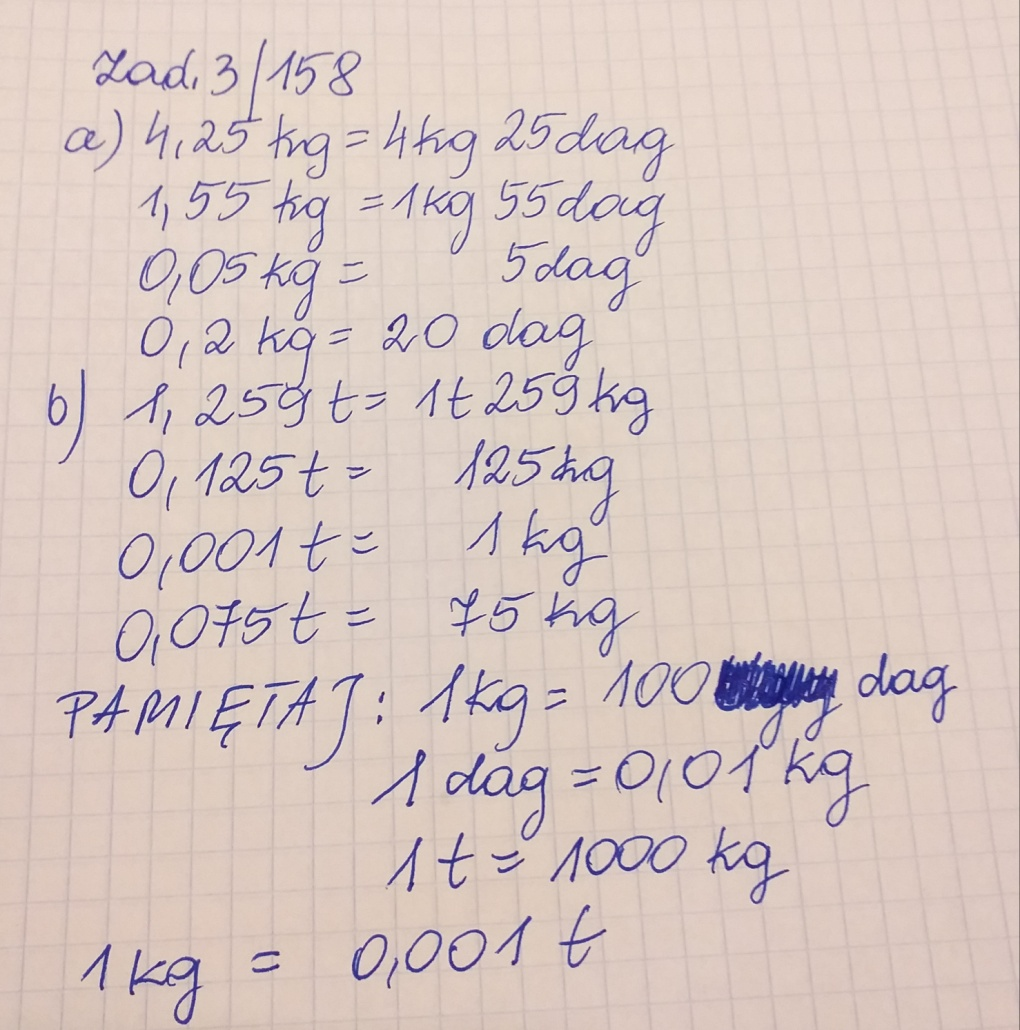 Zad. 3/158
a) 4,25 kg = 4kg 25dag
1,55 kg = 1kg 55dag
0,05kg = 5dag
0,2 kg = 20 dag
b) 1,259 t = 1t 259kg
0,125t = 125kg
0,001t = 1kg
0,075t = 75 kg
PAMIĘTAJ: 1kg = 100 dag
1 dag = 0,01 kg
1 t = 1000 kg
1kg = 0,001 t